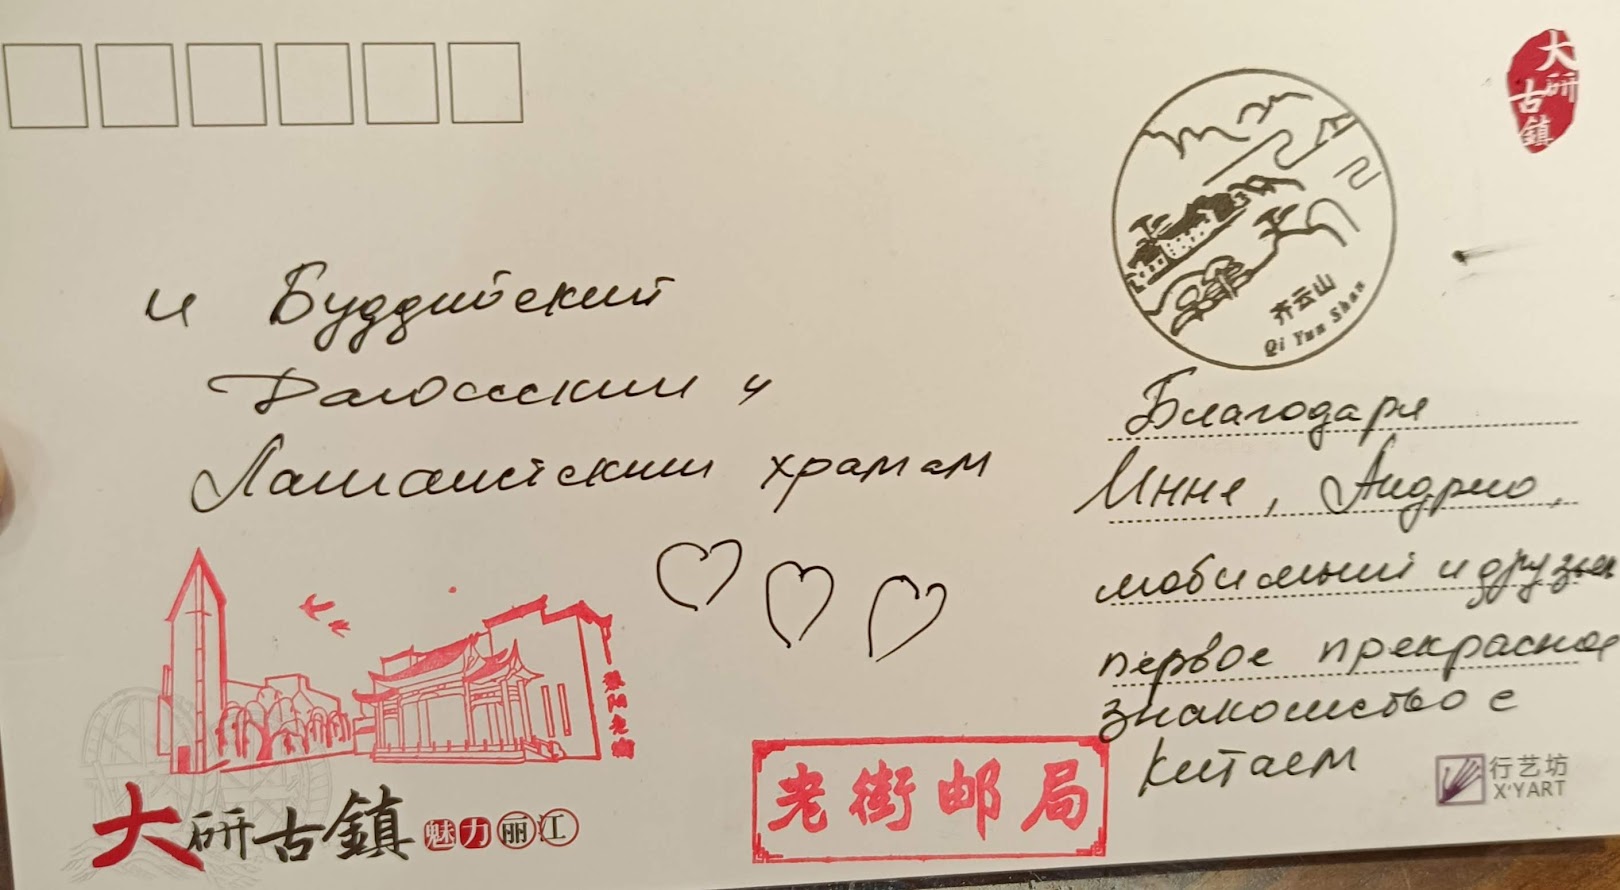 大研古鎮
齐云山
Qi Yun Shan
и Буддийский
Даосский и
Ламаистский храмам
Благодаря
Инне, Андрею,
мобильный и друзья
первое прекрасное
знакомство с
Китаем
老街邮局
大研古鎮 魅力丽江
行艺坊
X'YART